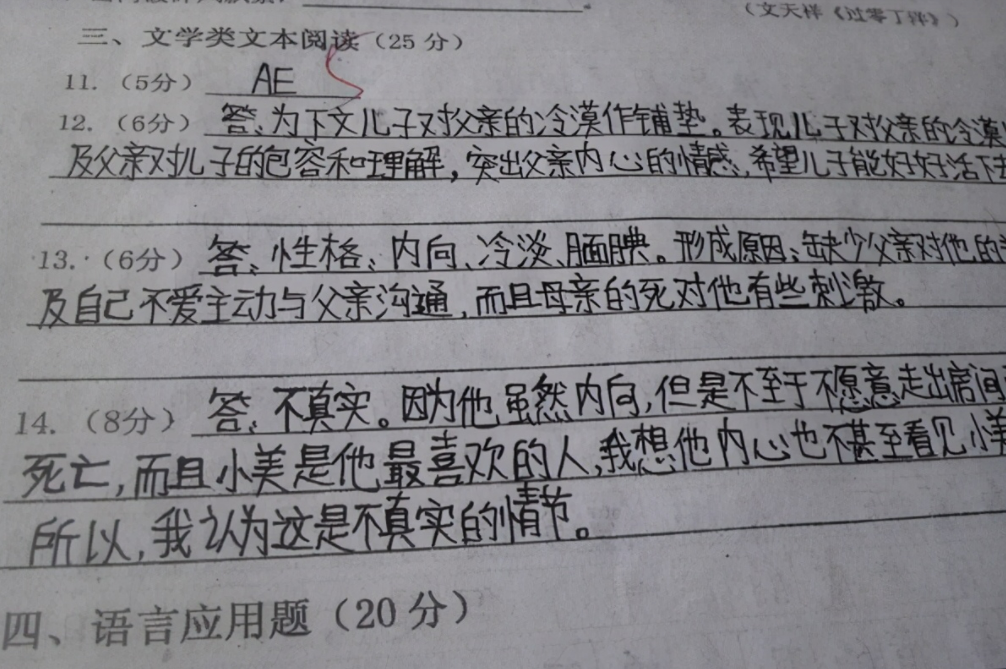 （文天祥《过零丁洋》）
三、文学类文本阅读（25分）
11.（5分） AE
12.（6分） 答:为下文儿子对父亲的冷漠作铺垫。表现儿子对父亲的冷漠
及父亲对儿子的包容和理解，突出父亲内心的情感，希望儿子能好好活下去
13.（6分） 答:性格:内向、冷淡、腼腆。形成原因:缺少父亲对他的
及自己不爱主动与父亲沟通，而且母亲的死对他有些刺激。
14.（8分） 答:不真实。因为他虽然内向，但是不至于不愿意走出房间
死亡，而且小美是他最喜欢的人，我想他内心也不甚至看见小美
所以，我认为这是不真实的情节。
四、语言应用题（20分）